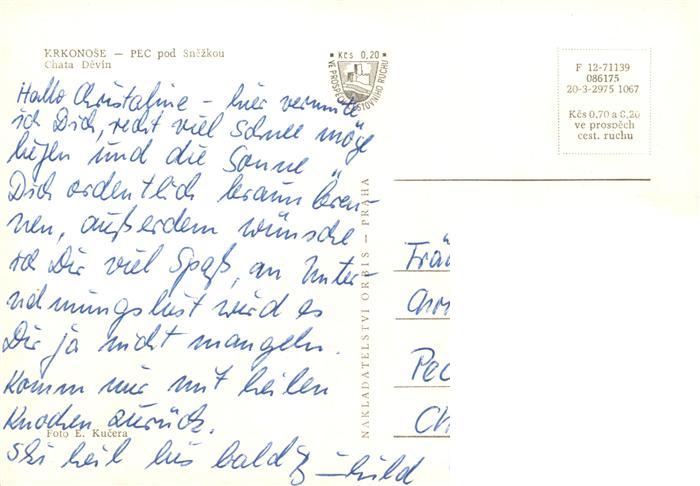 KRKONOŠE — PEC pod Sněžkou
Chata Děvín
Kčs 0,20
VE PROSPĚCH CESTOVNÍHO RUCHU
F 12-71139
086175
20-3-2975 1067
Kčs 0,70 a 0,20
ve prospěch
cest. ruchu
Hallo Christaline – hier vermute
ich Dich, recht viel Schnee möge
liegen und die Sonne
Dich ordentlich braun bren-
nen, außerdem wünsche
ich Dir viel Spaß, an Unter-
nehmungslust wird es
Dir ja nicht mangeln.
Komm nur mit heilen
Knochen zurück.
Ski heil bis bald
NAKLADATELSTVÍ ORBIS — PRAHA
Foto E. Kučera
Frä
Pec
Ch